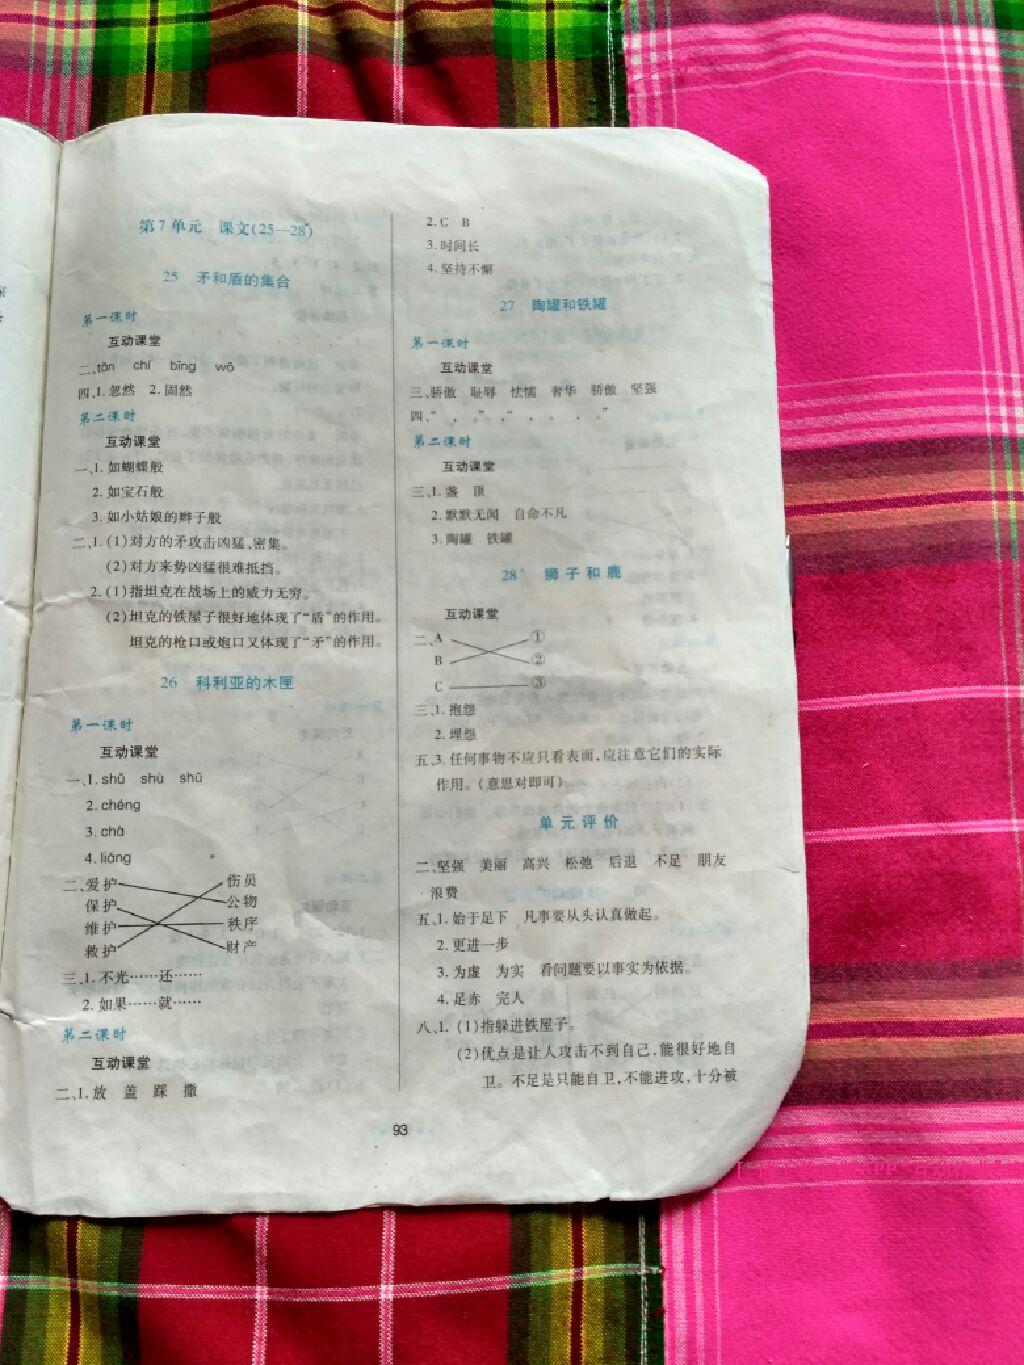 第7单元 课文(25—28*)
25 矛和盾的集合
第一课时
互动课堂
二、tān chī bīng wō
四、1. 忽然 2. 固然
第二课时
互动课堂
一、1. 如蝴蝶般
2. 如宝石般
3. 如小姑娘的辫子般
二、1. (1)对方的矛攻击凶猛、密集。
(2)对方来势凶猛很难抵挡。
2. (1)指坦克在战场上的威力无穷。
(2)坦克的铁屋子很好地体现了“盾”的作用。
坦克的枪口或炮口又体现了“矛”的作用。
26 科利亚的木匣
第一课时
互动课堂
一、1. shǔ shù shū
2. chéng
3. chà
4. liáng
二、爱护 伤员
保护 公物
维护 秩序
救护 财产
三、1. 不光……还……
2. 如果……就……
第二课时
互动课堂
二、1. 放 盖 踩 撒
2. C B
3. 时间长
4. 坚持不懈
27 陶罐和铁罐
第一课时
互动课堂
三、骄傲 耻辱 怯懦 奢华 骄傲 坚强
四、“ , 。” “ , 。 , 。”
第二课时
互动课堂
三、1. 盏 顶
2. 默默无闻 自命不凡
3. 陶罐 铁罐
28* 狮子和鹿
互动课堂
二、A ①
B ②
C ③
三、1. 抱怨
2. 埋怨
五、3. 任何事物不应只看表面,应注意它们的实际
作用。(意思对即可)
单元评价
二、坚强 美丽 高兴 松弛 后退 不足 朋友
浪费
五、1. 始于足下 凡事要从头认真做起。
2. 更进一步
3. 为虚 为实 看问题要以事实为依据。
4. 足赤 完人
八、1. (1)指躲进铁屋子。
(2)优点是让人攻击不到自己,能很好地自
卫。不足是只能自卫,不能进攻,十分被
93